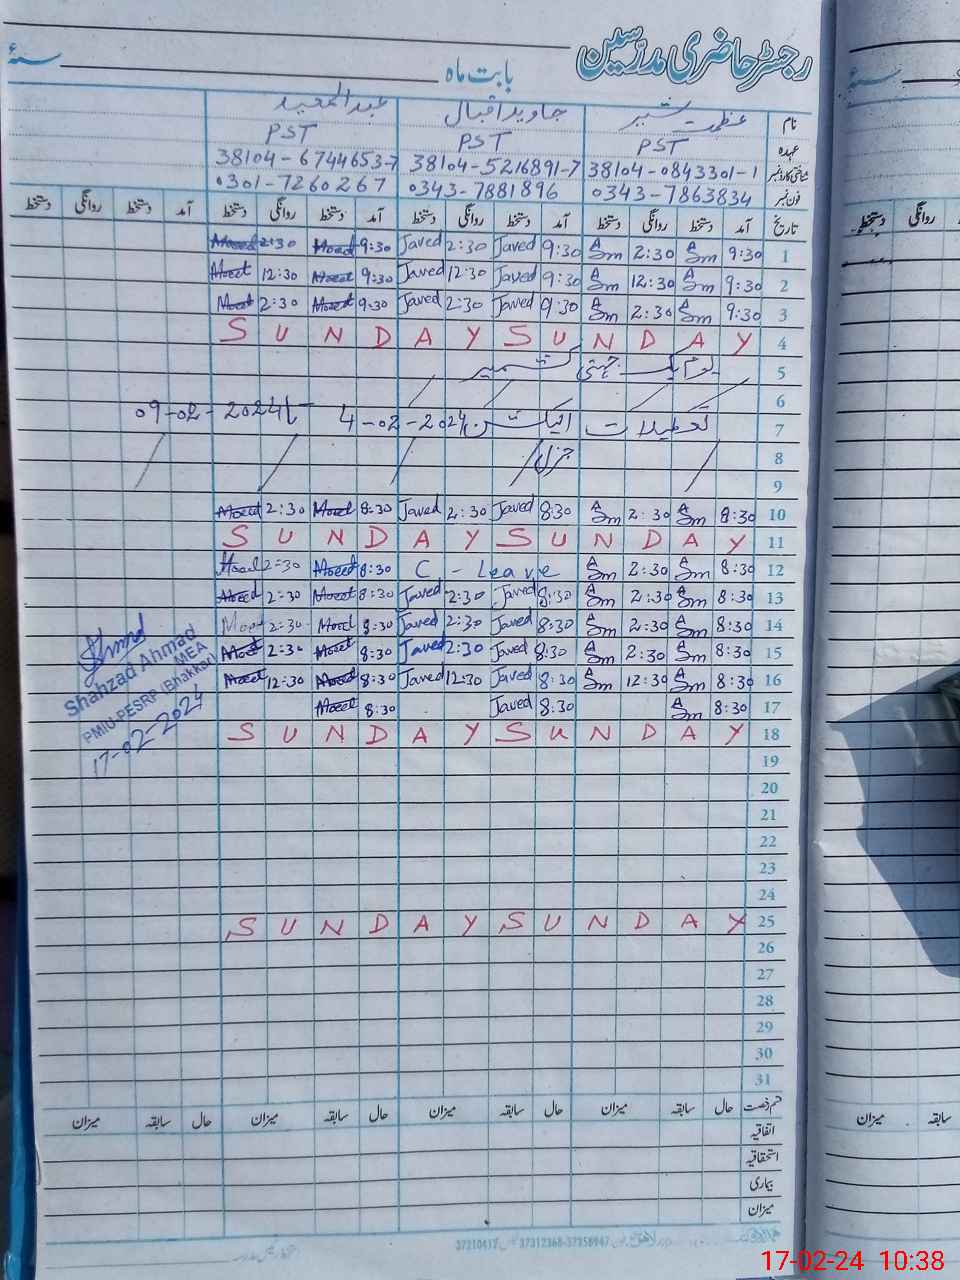 رجسٹر حاضری مدرسین
بابت ماہ سنہء
نام عظمت شبیر جاوید اقبال عبدالمعید
عہدہ PST PST PST
شناختی کارڈ نمبر 38104-0843301-1 38104-5216891-7 38104-6744653-7
فون نمبر 0343-7863834 0343-7881896 0301-7260267
تاریخ آمد دستخط روانگی دستخط آمد دستخط روانگی دستخط آمد دستخط روانگی دستخط آمد دستخط روانگی دستخط
1 9:30 Sm 2:30 Sm 9:30 Javed 2:30 Javed 9:30 Moeed 2:30 Moeed
2 9:30 Sm 12:30 Sm 9:30 Javed 12:30 Javed 9:30 Moeed 12:30 Moeed
3 9:30 Sm 2:30 Sm 9:30 Javed 2:30 Javed 9:30 Moeed 2:30 Moeed
4 SUNDAY SUNDAY
5 یوم یکجہتی کشمیر
6
7 تعطیلات الیکشن 4-02-2024 تا 09-02-2024
8 جنرل
9
10 8:30 Sm 2:30 Sm 8:30 Javed 2:30 Javed 8:30 Moeed 2:30 Moeed
11 SUNDAY SUNDAY
12 8:30 Sm 2:30 Sm C-Leave 8:30 Moeed 2:30 Moeed
13 8:30 Sm 2:30 Sm 8:30 Javed 2:30 Javed 8:30 Moeed 2:30 Moeed
14 8:30 Sm 2:30 Sm 8:30 Javed 2:30 Javed 8:30 Moeed 2:30 Moeed
15 8:30 Sm 2:30 Sm 8:30 Javed 2:30 Javed 8:30 Moeed 2:30 Moeed
16 8:30 Sm 12:30 Sm 8:30 Javed 12:30 Javed 8:30 Moeed 12:30 Moeed
17 8:30 Sm 8:30 Javed 8:30 Moeed
18 SUNDAY SUNDAY
Shahzad Ahmad
MEA
PMIU-PESRP (Bhakkar)
17-02-2024
19
20
21
22
23
24
25 SUNDAY SUNDAY
26
27
28
29
30
31
قسم رخصت حال سابقہ میزان حال سابقہ میزان حال سابقہ میزان حال سابقہ میزان
اتفاقیہ
استحقاقیہ
بیماری
میزان
37310417 37312368-37358947
سنہء
روانگی دستخط
سابقہ میزان
17-02-24 10:38